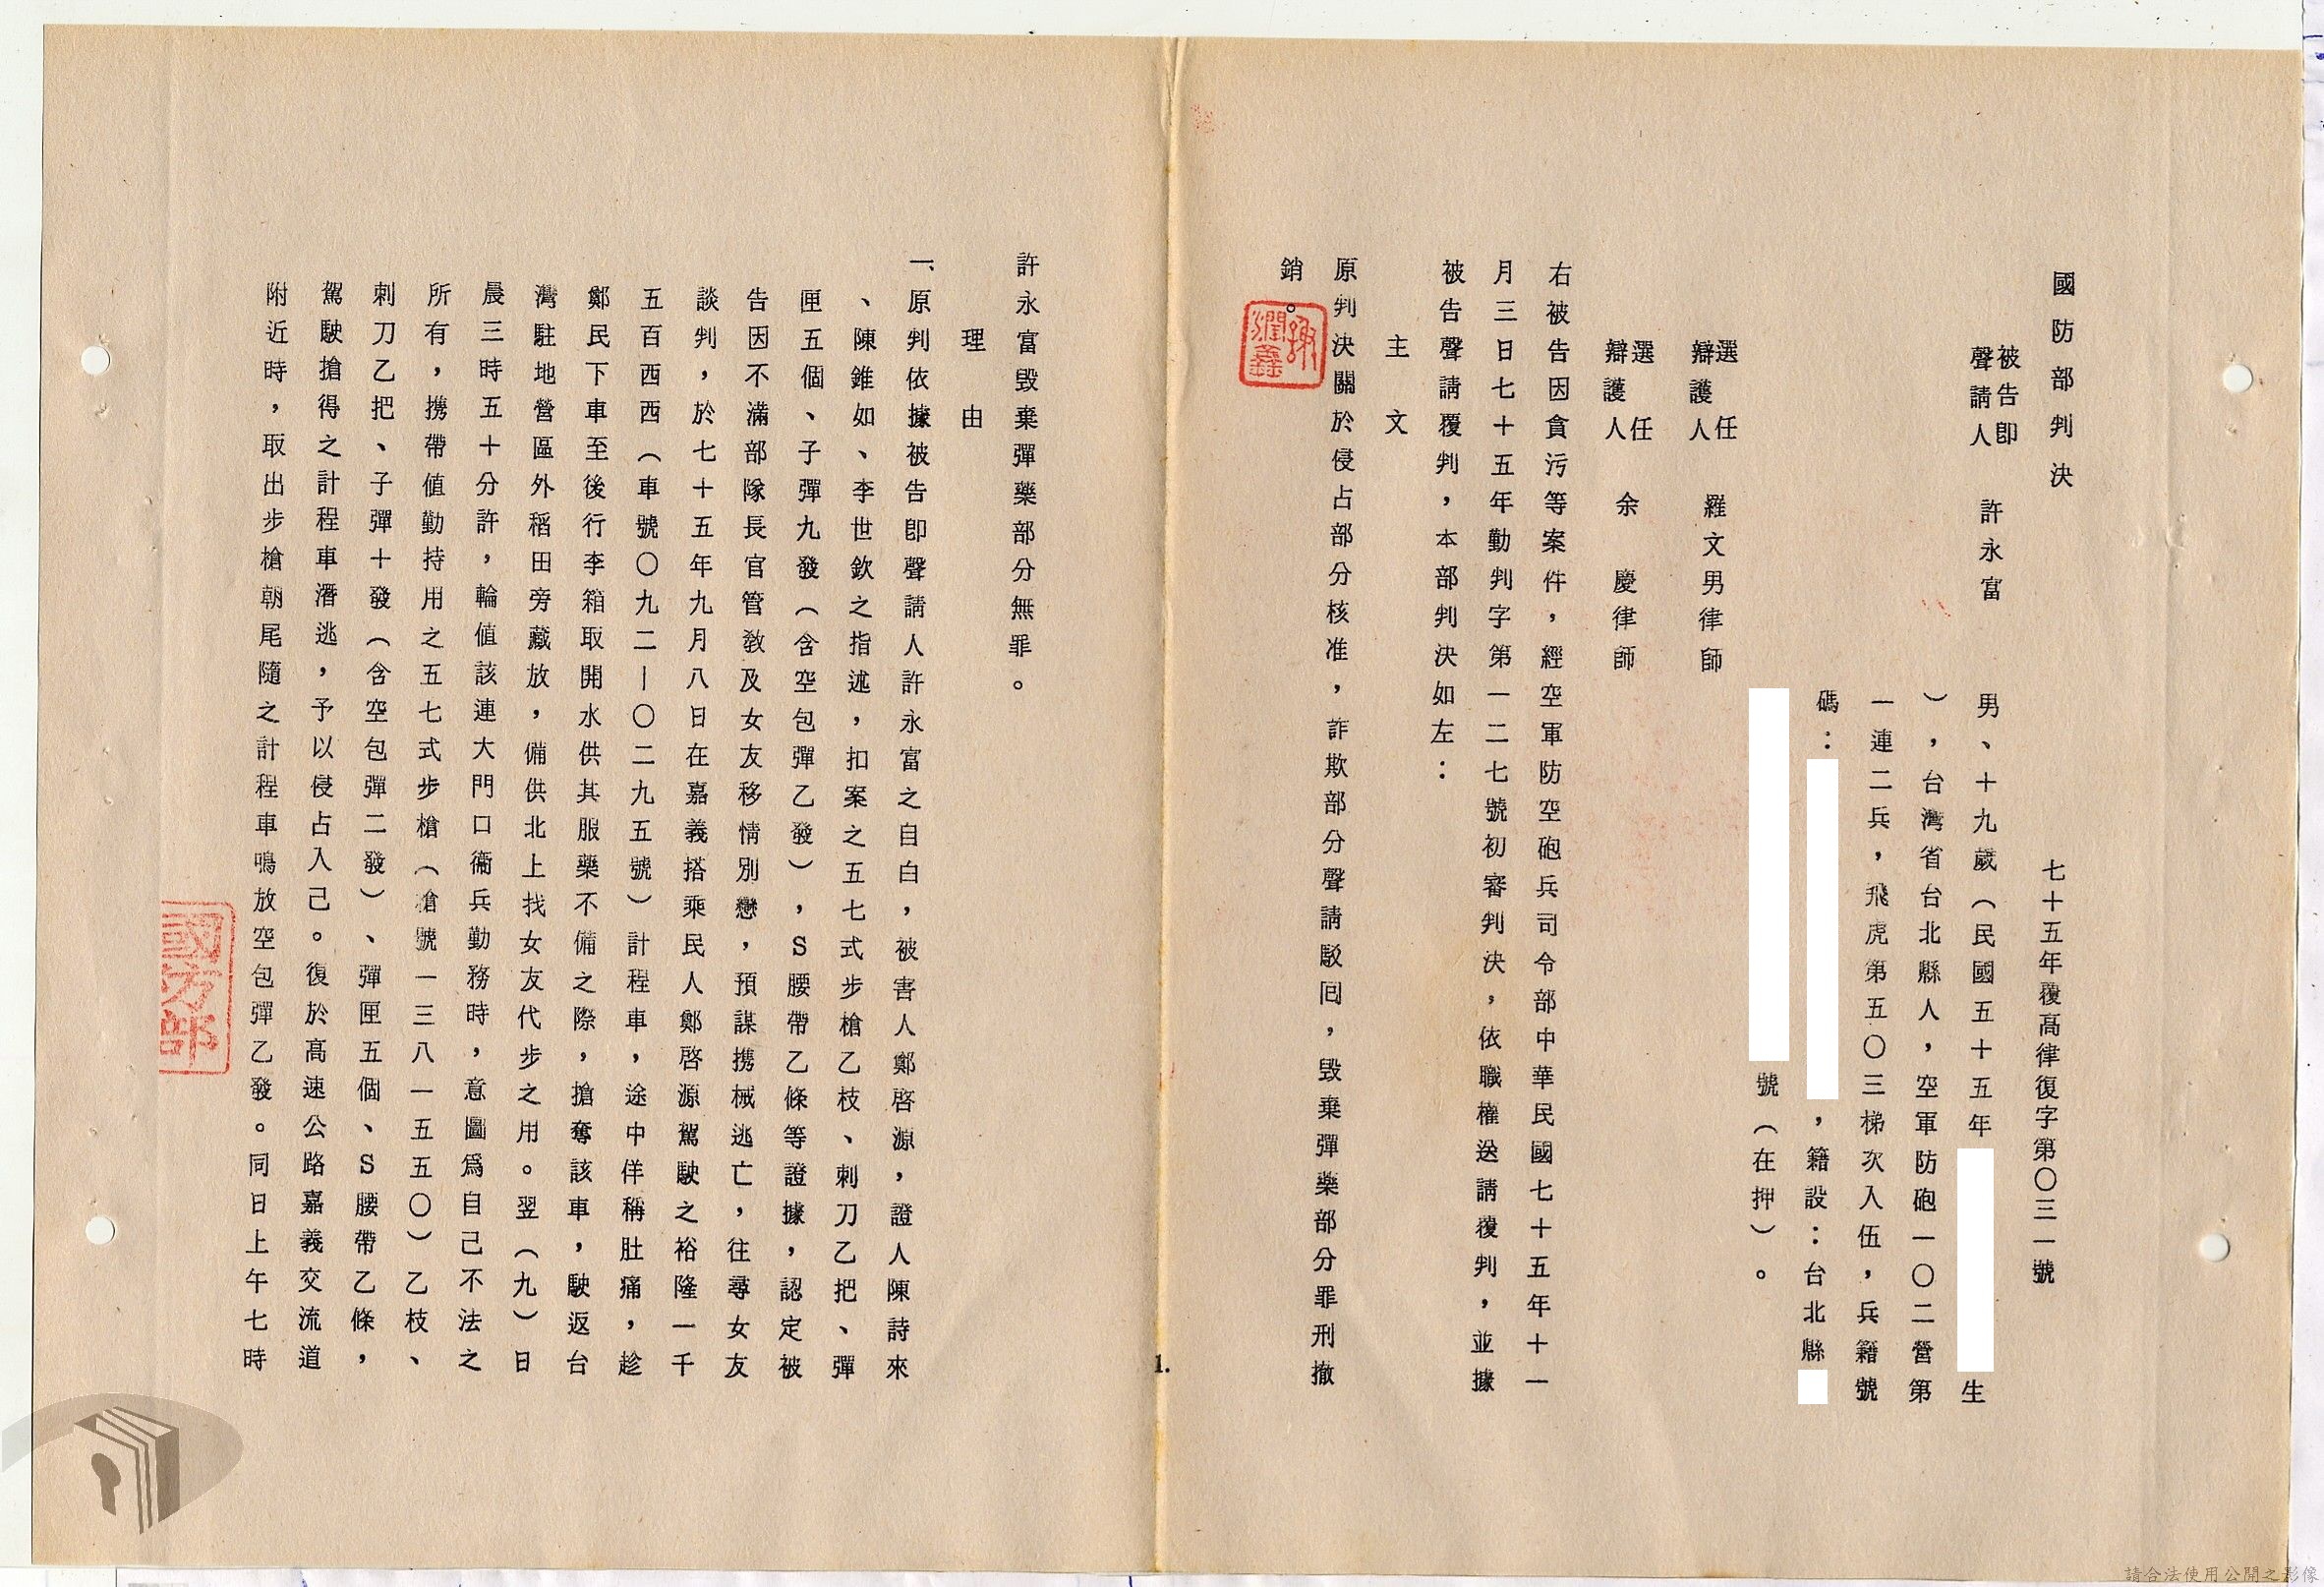 國防部判決
七十五年覆高律復字第〇三一號
被告即
聲請人 許永富
男、十九歲（民國五十五年 生
），台灣省台北縣人，空軍防砲一〇二營第
一連二兵，飛虎第五〇三梯次入伍，兵籍號
碼： ，籍設：台北縣
號（在押）。
選任
辯護人 羅文男律師
選任
辯護人 余慶律師
右被告因貪污等案件，經空軍防空砲兵司令部中華民國七十五年十一
月三日七十五年勤判字第一二七號初審判決，依職權送請覆判，並據
被告聲請覆判，本部判決如左：
主文
原判決關於侵占部分核准，詐欺部分聲請駁囘，毀棄彈藥部分罪刑撤
銷。
謝潤鑫
1.
許永富毀棄彈藥部分無罪。
理由
一、原判依據被告即聲請人許永富之自白，被害人鄭啓源，證人陳詩來
、陳錐如、李世欽之指述，扣案之五七式步槍乙枝、刺刀乙把、彈
匣五個、子彈九發（含空包彈乙發），S腰帶乙條等證據，認定被
告因不滿部隊長官管教及女友移情別戀，預謀携械逃亡，往尋女友
談判，於七十五年九月八日在嘉義搭乘民人鄭啓源駕駛之裕隆一千
五百西西（車號〇九二—〇二九五號）計程車，途中佯稱肚痛，趁
鄭民下車至後行李箱取開水供其服藥不備之際，搶奪該車，駛返台
灣駐地營區外稻田旁藏放，備供北上找女友代步之用。翌（九）日
晨三時五十分許，輪值該連大門口衞兵勤務時，意圖爲自己不法之
所有，携帶值勤持用之五七式步槍（槍號一三八一五五〇）乙枝、
刺刀乙把、子彈十發（含空包彈二發）、彈匣五個、S腰帶乙條，
駕駛搶得之計程車潛逃，予以侵占入己。復於高速公路嘉義交流道
附近時，取出步槍朝尾隨之計程車鳴放空包彈乙發。同日上午七時
國防部
請合法使用公開之影像